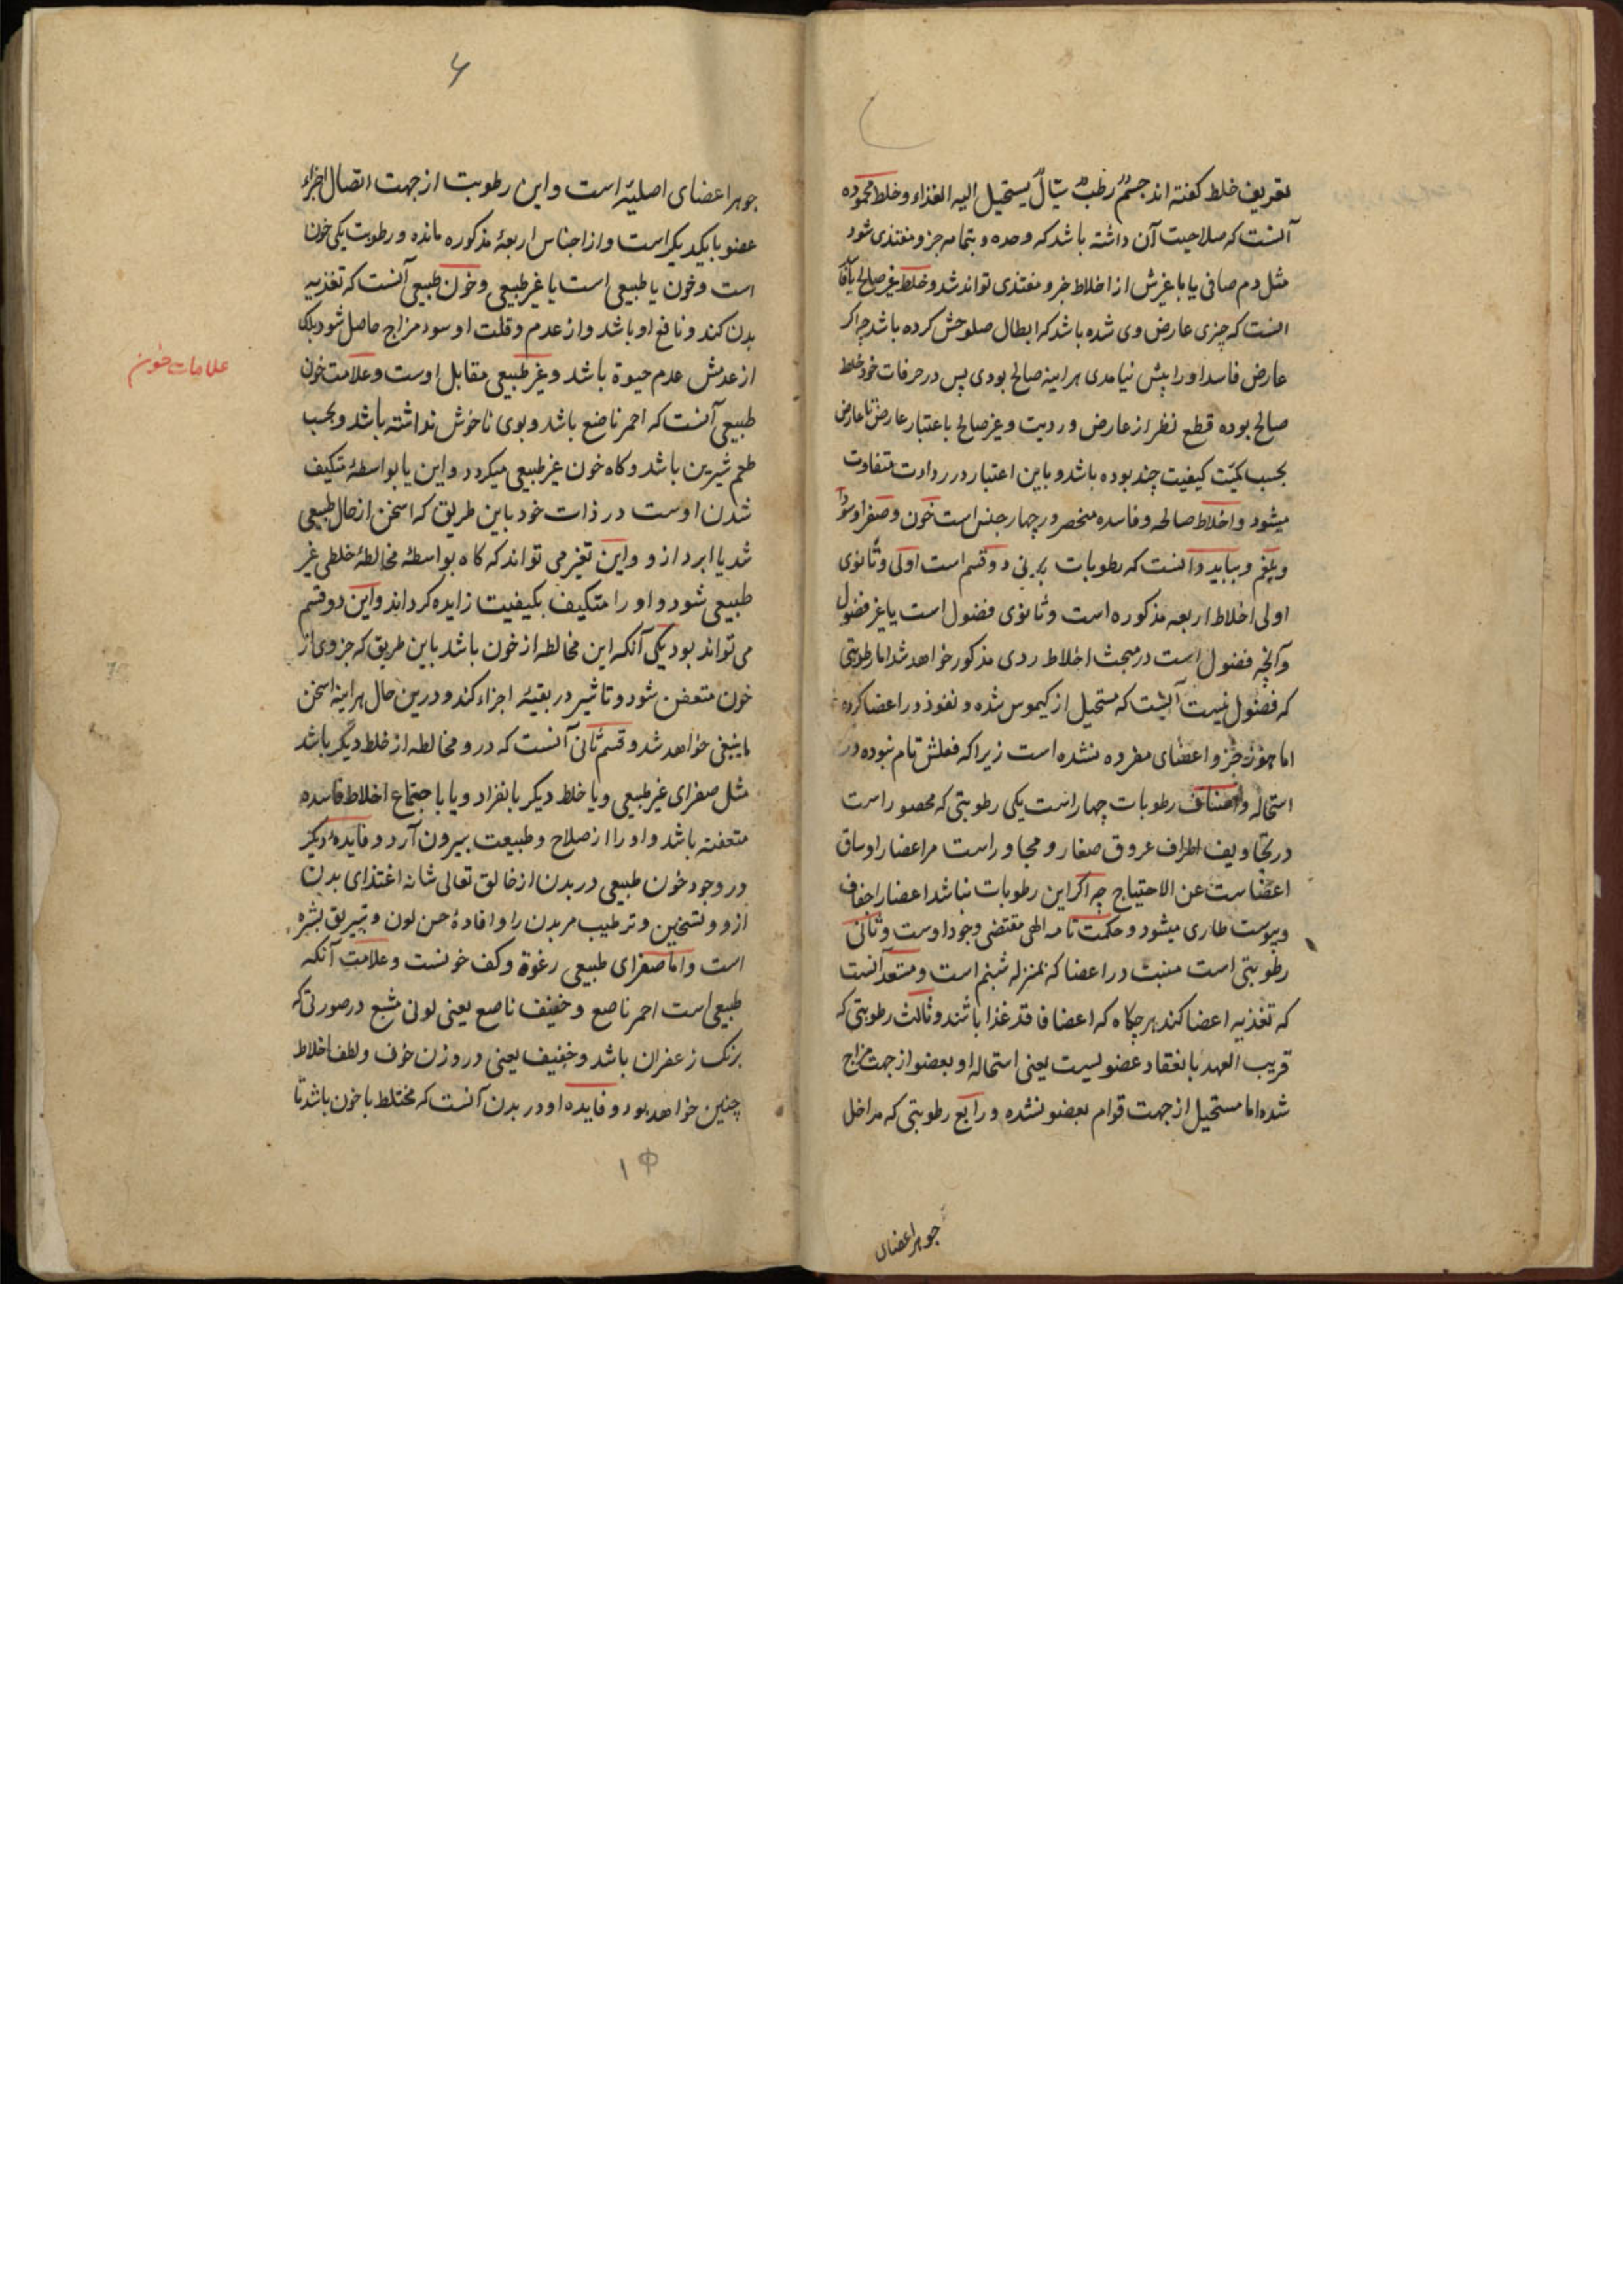 تعریف خلط کفته اند جسمٌ رطبٌ سیّالٌ یستحیل الیه الغذاء و خلط محموده
آنست که صلاحیت آن داشته باشد که وحده و بتمامه جزو مغتذی شود
مثل دم صافی یا با غیرش از اخلاط جزو مغتذی تواند شد و خلط غیر صالح
انست که چیزی عارض وی شده باشد که ابطال صلوحش کرده باشد چه اکر
عارض فاسد او را پیش نیامدی هراینه صالح بودی پس در حرفات خود خلط
صالح بوده قطع نظر از عارض و ردیت و غیر صالح باعتبار عارض تا عارض
بحسب کمیّت کیفیت چند بوده باشد و باین اعتبار در رداوت متفاوت
میشود و اخلاط صالحه و فاسده منحصر در چهار جنس است خون و صفرا و سودا
و بلغم و بباید دانست که رطوبات بدنی دو قسم است اولی و ثانوی
اولی اخلاط اربعه مذکوره است و ثانوی فضول است یا غیر فضول
و آنچه فضول است در مبحث اخلاط ردی مذکور خواهد شد اما رطوبتی
که فضول نیست آنست که مستحیل از کیموس شده و نفوذ در اعضا کرده
اما هنوز جزو اعضای مفرده نشده است زیرا که فعلش تام نبوده در
استحاله و اصناف رطوبات چهار است یکی رطوبتی که محصور است
در تجاویف اطراف عروق صغار و مجاور است مر اعضار او ساق
اعضاست عن الاحتیاج چه اکر این رطوبات نباشد اعضار اجفاف
و یبوست طاری میشود و حکمت تامه الهی مقتضی وجود اوست و ثانی
رطوبتی است منبث در اعضا که بمنزله شبنم است و مستعد آنست
که تغذیه اعضا کند هر چکاه که اعضا فاقد غذا باشند و ثالث رطوبتی که
قریب العهد بانعقاد عضویست یعنی استحاله او بعضو از جهت مزاج
شده اما مستحیل از جهت قوام بعضو نشده و رابع رطوبتی که مداخل
جوهر اعضای
۶
جوهر اعضای اصلیّه است و این رطوبت از جهت اتصال اجزاء
عضو بایکدیکر است و از اجناس اربعهٔ مذکوره مانده و رطوبت یکی خون
است و خون یا طبیعی است یا غیر طبیعی و خون طبیعی آنست که تغذیه
بدن کند و نافع او باشد و از عدم و قلت او سوء مزاج حاصل شود بلکه
از عدمش عدم حیوة باشد و غیر طبیعی مقابل اوست و علامت خون
علامات خون
طبیعی آنست که احمر ناصع باشد و بوی ناخوش نداشته باشد و بحسب
طعم شیرین باشد و کاه خون غیر طبیعی میکردد و این یا بواسطهٔ متکیف
شدن اوست در ذات خود باین طریق که اسخن از حال طبیعی
شد یا ابرد ازو و این تغیر می تواند که کاه بواسطهٔ مخالطهٔ خلطی غیر
طبیعی شود و او را متکیف بکیفیت زایده کرداند و این دو قسم
می تواند بود یکی آنکه این مخالطه از خون باشد باین طریق که جزوی از
خون متعفن شود و تاثیر در بقیهٔ اجزاء کند و درین حال هراینه اسخن
ماینبغی خواهد شد و قسم ثانی آنست که درو مخالطه از خلط دیگر باشد
مثل صفرای غیر طبیعی و یا خلط دیکر بانفراد و یا باجتماع اخلاط فاسده
متعفنه باشد و او را از صلاح و طبیعت بیرون آرد و فایدهٔ دیکر
در وجود خون طبیعی در بدن از خالق تعالی شانه اغتذای بدن
ازو و تسخین و ترطیب مر بدن را و افادهٔ حسن لون و تبریق بشره
است و اما صفرای طبیعی رغوة و کف خونست و علامت آنکه
طبیعی است احمر ناصع و خفیف ناصع یعنی لونی مشبع در صورتی که
برنک زعفران باشد و خفیف یعنی در وزن خون و لطف اخلاط
چنین خواهد بود و فایده او در بدن آنست که مختلط با خون باشد تا